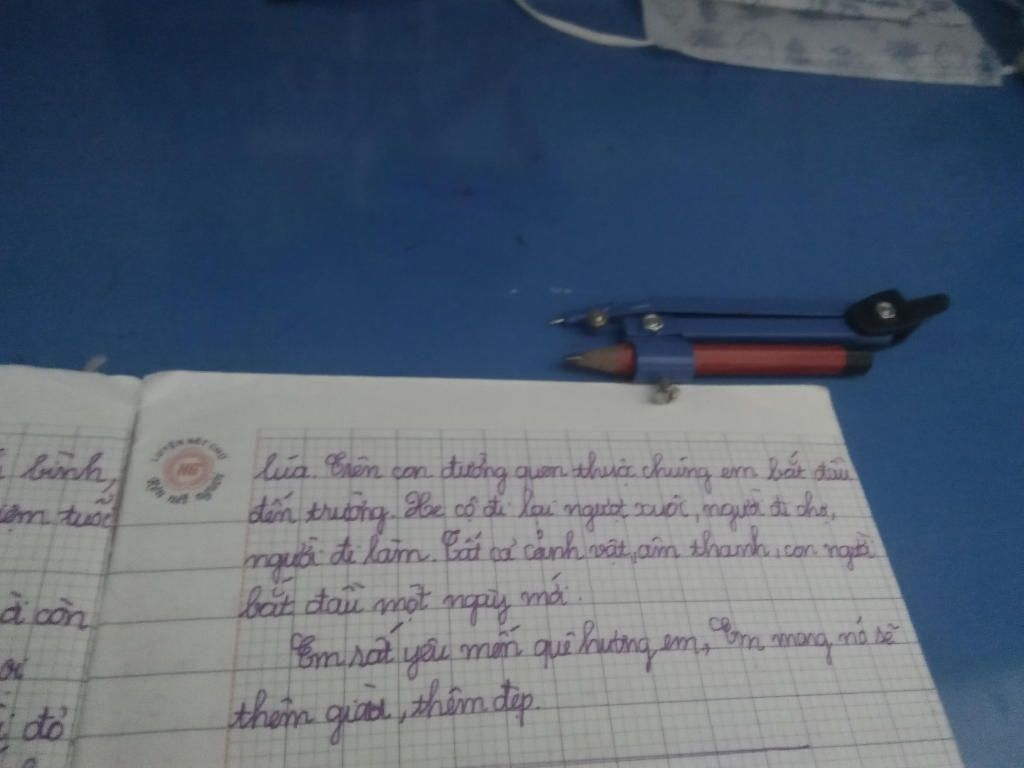 LUYỆN NÉT CHỮ
HG
RÈN NẾT NGƯỜI
bình,
à còn
đỏ
lúa. Trên con đường quen thuộc chúng em bắt đầu
đến trường. Xe cộ đi lại ngượt xuôi, người đi chợ,
người đi làm. Tất cả cảnh vật, âm thanh, con người
bắt đầu một ngày mới.
Em rất yêu mến quê hương em, Em mong nó sẽ
thêm giàu, thêm đẹp.